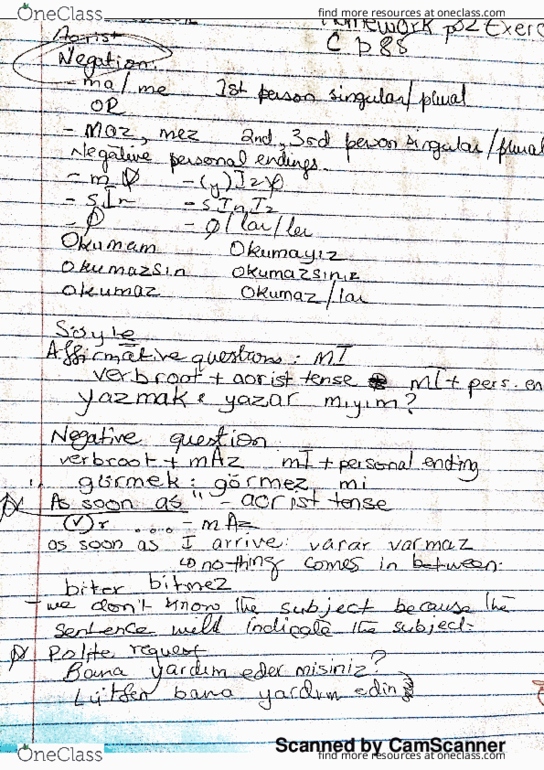 OneClass
find more resources at oneclass.com
Homework p82 Exerc
C p 88
Aorist
Negation.
- ma/me 1st person singular/plural
OR
- maz, mez 2nd, 3rd person singular/plural
Negative personal endings.
- m - (y)Iz
- sIn - sInIz
- Ø - Ø/lar/ler
Okumam Okumayız
okumazsın okumazsınız
okumaz okumaz/lar
Söyle
Affirmative questions: MI
verbroot + aorist tense MI + pers. en
yazmak : yazar mıyım?
Negative question
verbroot + mAz mI + personal ending
görmek : görmez mi
"As soon as" - aorist tense
(V)r ... - mAz
as soon as I arrive: varar varmaz
no-thing comes in between.
biter bitmez
- we don't know the subject because the
sentence will indicate the subject.
Polite request
Bana yardım eder misiniz?
Lütfen bana yardım edin
Scanned by CamScanner
OneClass
find more resources at oneclass.com